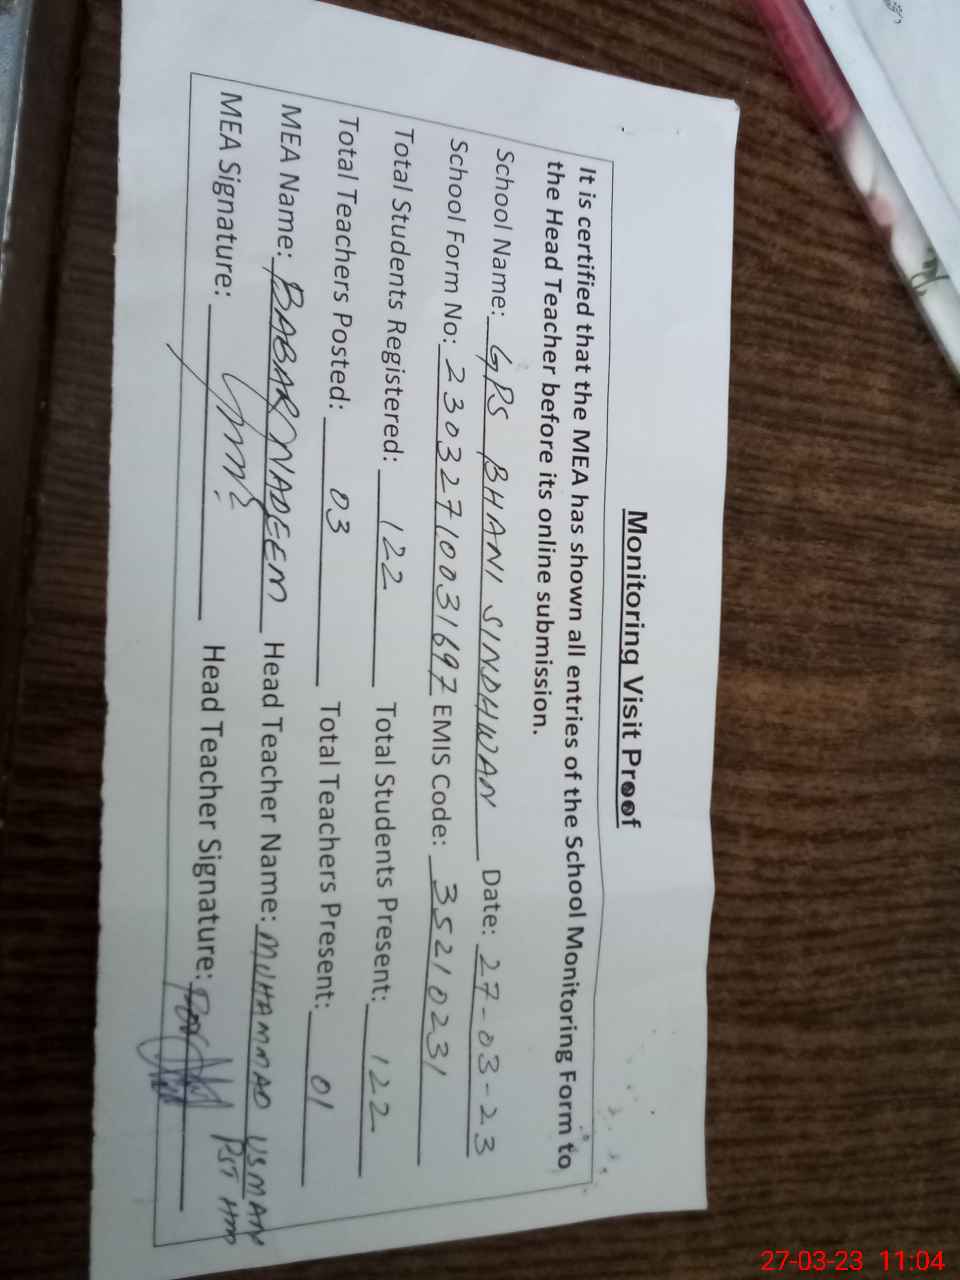 Monitoring Visit Proof
It is certified that the MEA has shown all entries of the School Monitoring Form to
the Head Teacher before its online submission.
School Name: GPS BHANI SINDHWAN Date: 27-03-23
School Form No: 23032710031697 EMIS Code: 35210231
Total Students Registered: 122 Total Students Present: 122
Total Teachers Posted: 03 Total Teachers Present: 01
MEA Name: BABAR NADEEM Head Teacher Name: MUHAMMAD USMAN
MEA Signature: Head Teacher Signature: PST
27-03-23 11:04